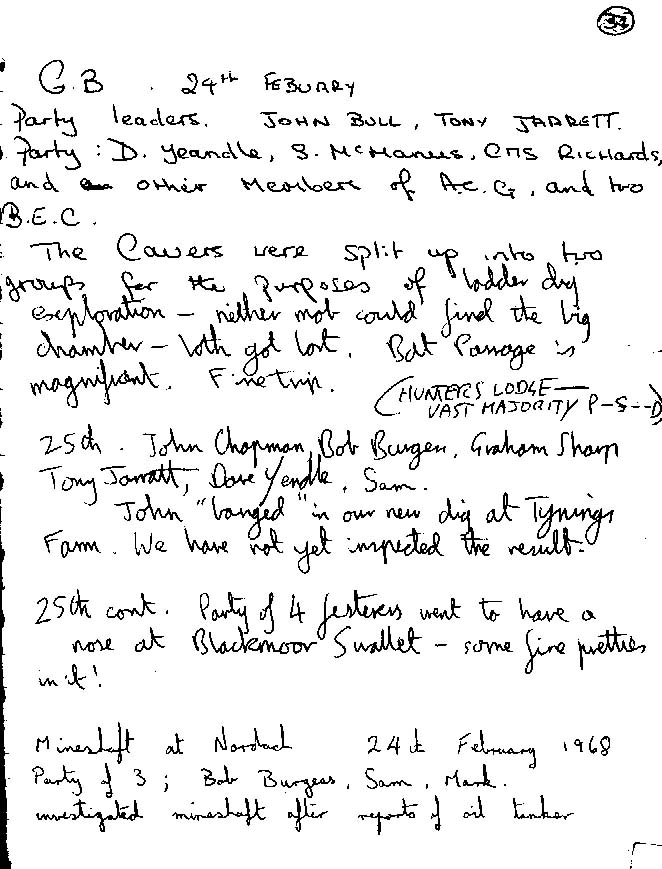 32
G.B . 24TH FEBURRY
Party leaders. JOHN BULL, TONY JARRETT.
Party : D. Yeandle, S. McManus, CMS Richards,
and other Members of A.C.G, and two
B.E.C.
The Cavers were split up into two
groups for the purposes of ladder dig
exploration – neither mob could find the big
chamber – both got lost. Bat Passage is
magnificant. Fine trip.
(HUNTERS LODGE —
VAST MAJORITY P–S––D)
25th. John Chapman, Bob Burgen, Graham Sharp
Tony Jarratt, Dave Yendle, Sam.
John "banged" in our new dig at Tynings
Farm. We have not yet inspected the result.
25th cont. Party of 4 festerers went to have a
nose at Blackmoor Swallet – some fine pretties
in it!
Mineshaft at Nordach 24th February 1968
Party of 3 ; Bob Burgess, Sam, Mark.
investigated mineshaft after reports of oil tanker